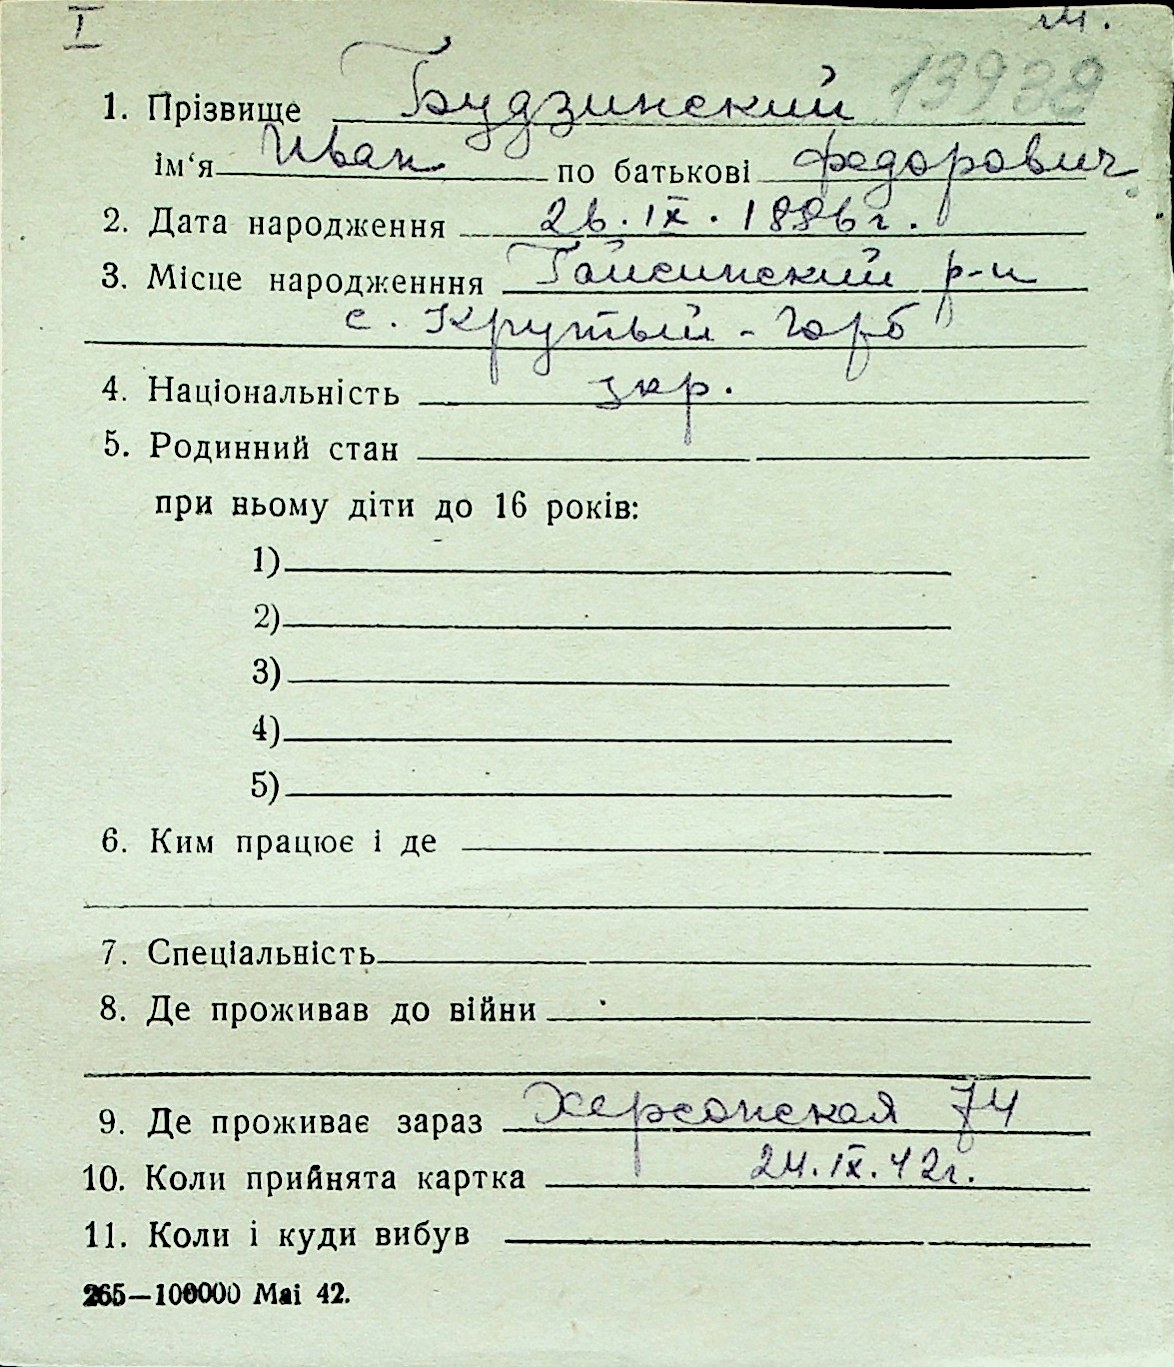 I м.
13938
1. Прізвище Будзинский
ім‘я Иван по батькові Федорович
2. Дата народження 26.IX.1886г.
3. Місце народженння Гайсинский р-н
с. Крутый-Горб
4. Національність укр.
5. Родинний стан
при ньому діти до 16 років:
1)
2)
3)
4)
5)
6. Ким працює і де
7. Спеціальність
8. Де проживав до війни
9. Де проживає зараз Херсонская 74
10. Коли прийнята картка 24.IX.42г.
11. Коли і куди вибув
265—100000 Mai 42.